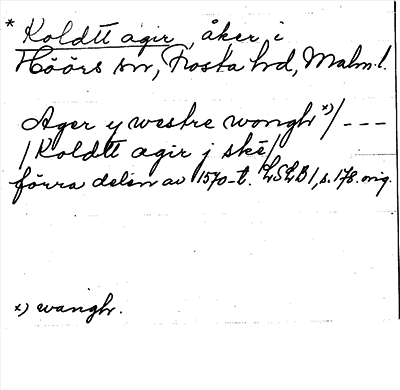 * Koldtt agir, åker i
Höörs sn, Frosta hd, Malm. l.
Ager y westre wongh x)/ - - -
/ Koldtt agir j skē/
förra delen av 1570-t. LSLB 1, s. 178. orig.
x) wangh.